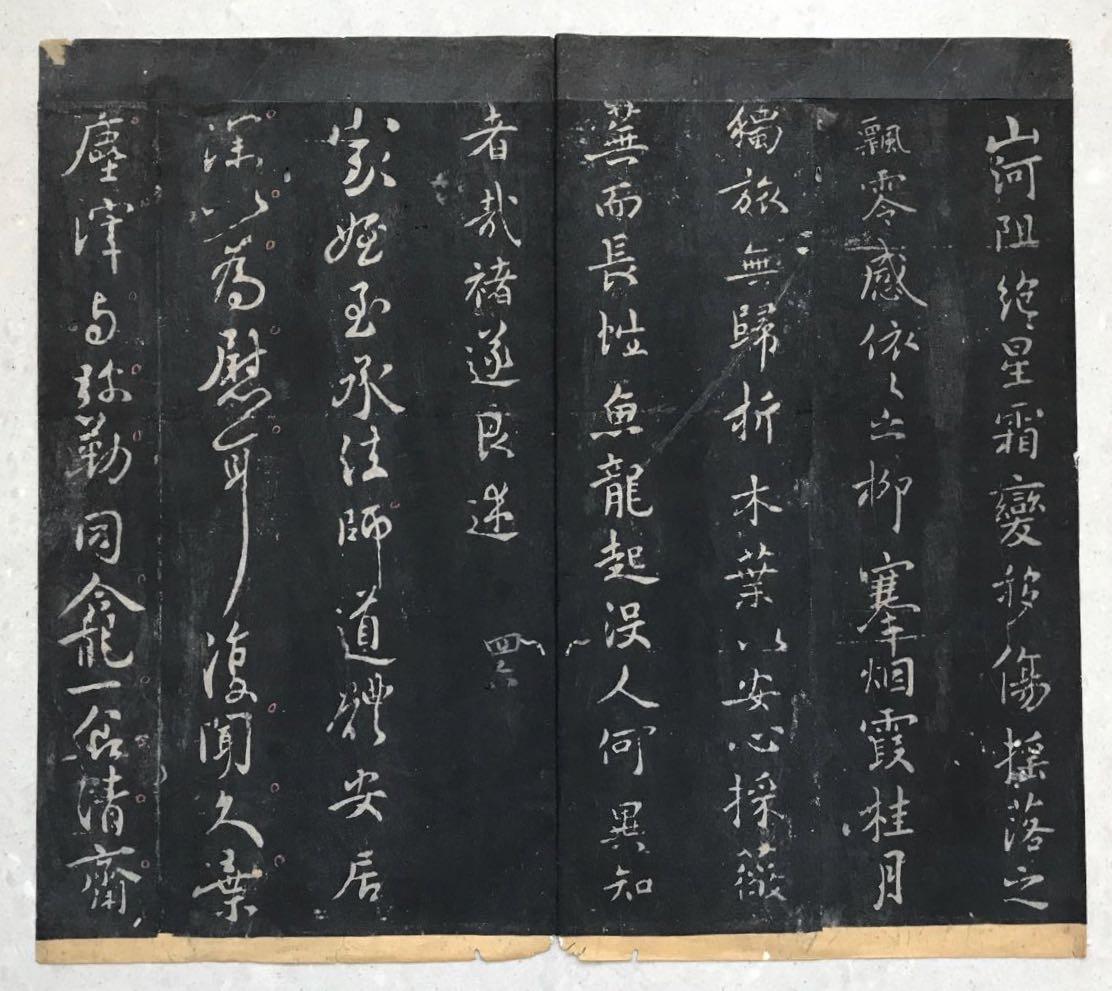 山河阻絶星霜變移傷摇落之
飄零感依〻之柳塞烟霞桂月
獨旅無歸折木葉以安心採薇
蕪而長性魚龍起没人何異知
者哉褚遂良述
家姪至承法師道體安居
深以為慰耳復聞久棄
塵滓与弥勒同龕一食清齋